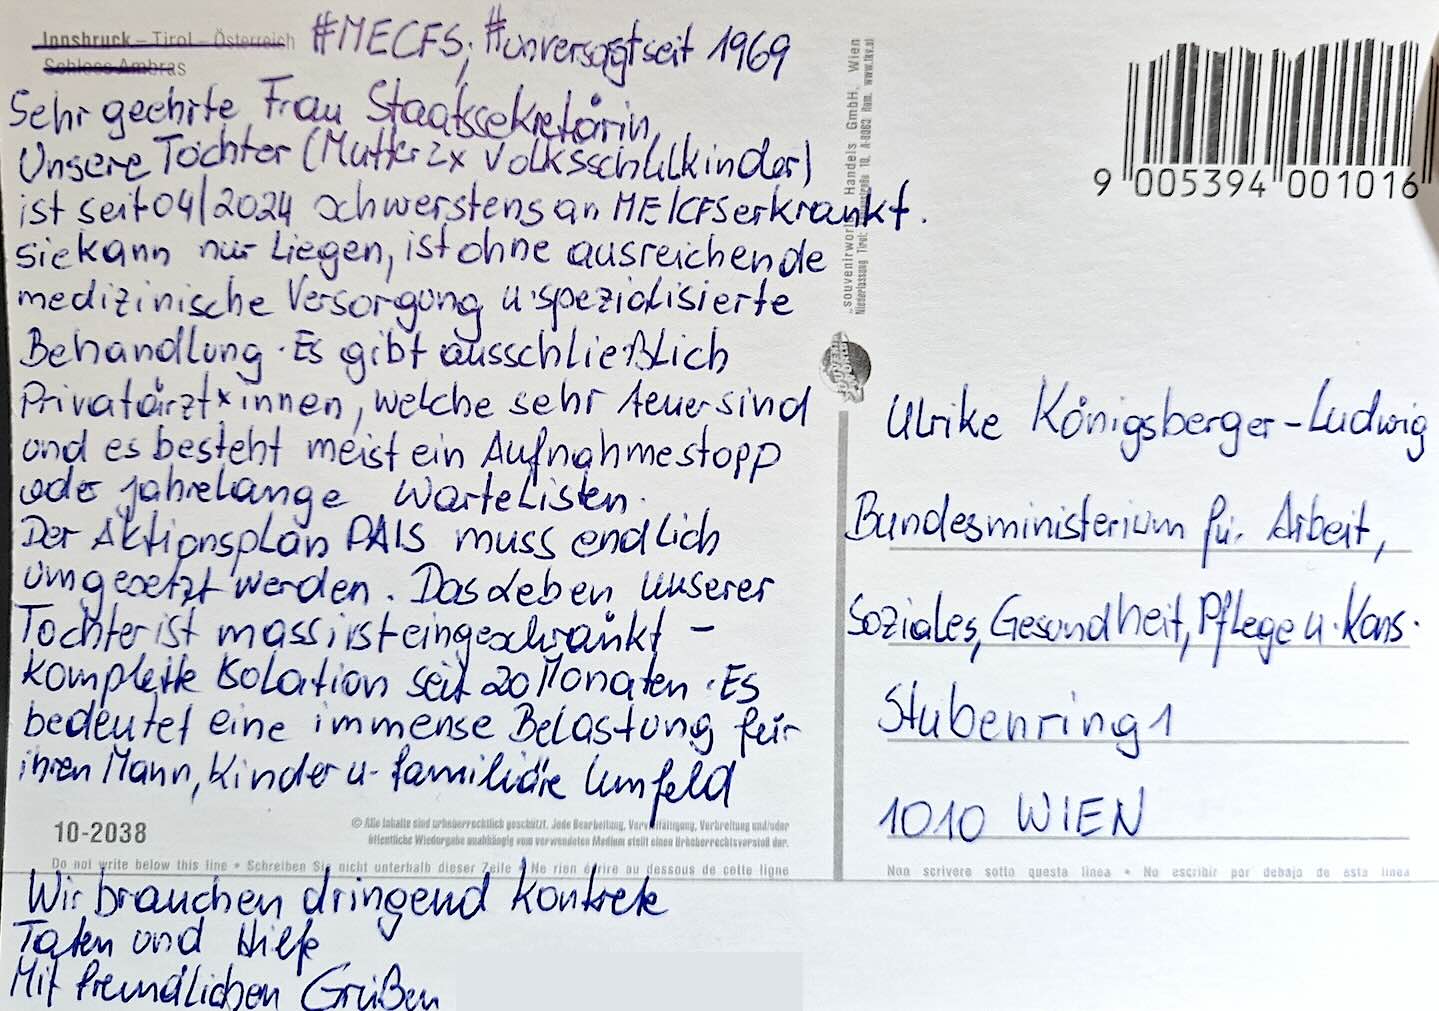 Innsbruck – Tirol – Österreich
Schloss Ambras
#MECFS; #unversorgtseit 1969
Sehr geehrte Frau Staatssekretärin,
Unsere Tochter (Mutter 2x Volksschulkinder)
ist seit 04/2024 schwerstens an ME/CFS erkrankt.
Sie kann nur Liegen, ist ohne ausreichende
medizinische Versorgung u. spezialisierte
Behandlung. Es gibt ausschließlich
Privatärzt*innen, welche sehr teuer sind
und es besteht meist ein Aufnahmestopp
oder jahrelange Wartelisten.
Der Aktionsplan PAIS muss endlich
umgesetzt werden. Das Leben unserer
Tochter ist massivst eingeschränkt –
komplette Isolation seit 20 Monaten. Es
bedeutet eine immense Belastung für
ihren Mann, Kinder u. familiäre Umfeld
10-2038
© Alle Inhalte sind urheberrechtlich geschützt. Jede Bearbeitung, Vervielfältigung, Verbreitung und/oder
öffentliche Wiedergabe unabhängig vom verwendeten Medium stellt einen Urheberrechtsverstoß dar.
Do not write below this line • Schreiben Sie nicht unterhalb dieser Zeile • Ne rien écrire au dessous de cette ligne
Wir brauchen dringend konkrete
Taten und Hilfe
Mit freundlichen Grüßen
souvenirworld Handels GmbH, Wien
Niederlassung Tirol: 10, A-6063 Rum, www.tkv.at
9 005394 001016
Ulrike Königsberger-Ludwig
Bundesministerium für Arbeit,
Soziales, Gesundheit, Pflege u. Kons.
Stubenring 1
1010 WIEN
Non scrivere sotto questa linea • No escribir por debajo de esta línea